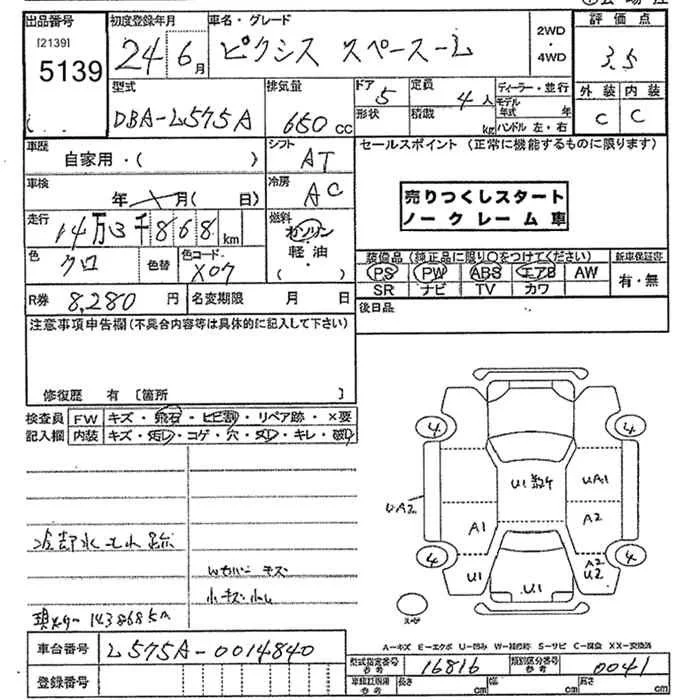 出品番号 初度登録年月 車名・グレード 評価点
[2139]
5139 24 6月 ピクシス スペース-L 2WD・4WD 3.5
外装 内装
C C
型式 排気量 ドア 定員 ディーラー・並行
DBA-L575A 650cc 5 4人 モデル年式 年
形状 積載 kg ハンドル 左・右
車歴 シフト セールスポイント (正常に機能するものに限ります)
自家用・( ) AT
車検 冷房
年 月( 日) AC
売りつくしスタート
ノークレーム車
走行 燃料
14万3千868km ガソリン
軽・油
( )
色 色替 色コード
クロ X07
装備品 (純正品に限り○をつけてください) 新車保証書
PS PW ABS エアB AW 有・無
SR ナビ TV カワ
R券 8,280円 名変期限 月 日 後日品
注意事項申告欄(不具合内容等は具体的に記入して下さい)
修復歴 有 [箇所 ]
検査員 FW キズ・飛石・ヒビ割・リペア跡・×要
記入欄 内装 キズ・汚レ・コゲ・穴・スレ・キレ・破レ
4 4
U1 UA1
UA2
A1 A2
冷却水モレ跡
4 4
Wカバーキズ
U1 U1 A2 U2
小キズ小凹
143868km
A-キズ E-エクボ U-凹み W-補修跡 S-サビ C-腐食 XX-交換済
車台番号 L575A-0014840
型式指定番号 16816 類別区分番号 0041
登録番号
長さ cm 幅 cm 高さ cm